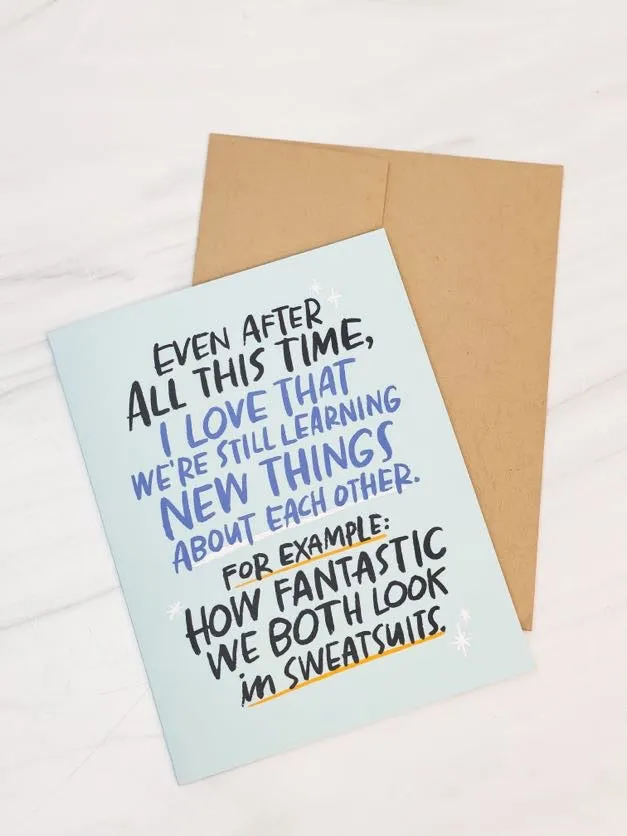 EVEN AFTER
ALL THIS TIME,
I LOVE THAT
WE'RE STILL LEARNING
NEW THINGS
ABOUT EACH OTHER.
FOR EXAMPLE:
HOW FANTASTIC
WE BOTH LOOK
in SWEATSUITS.